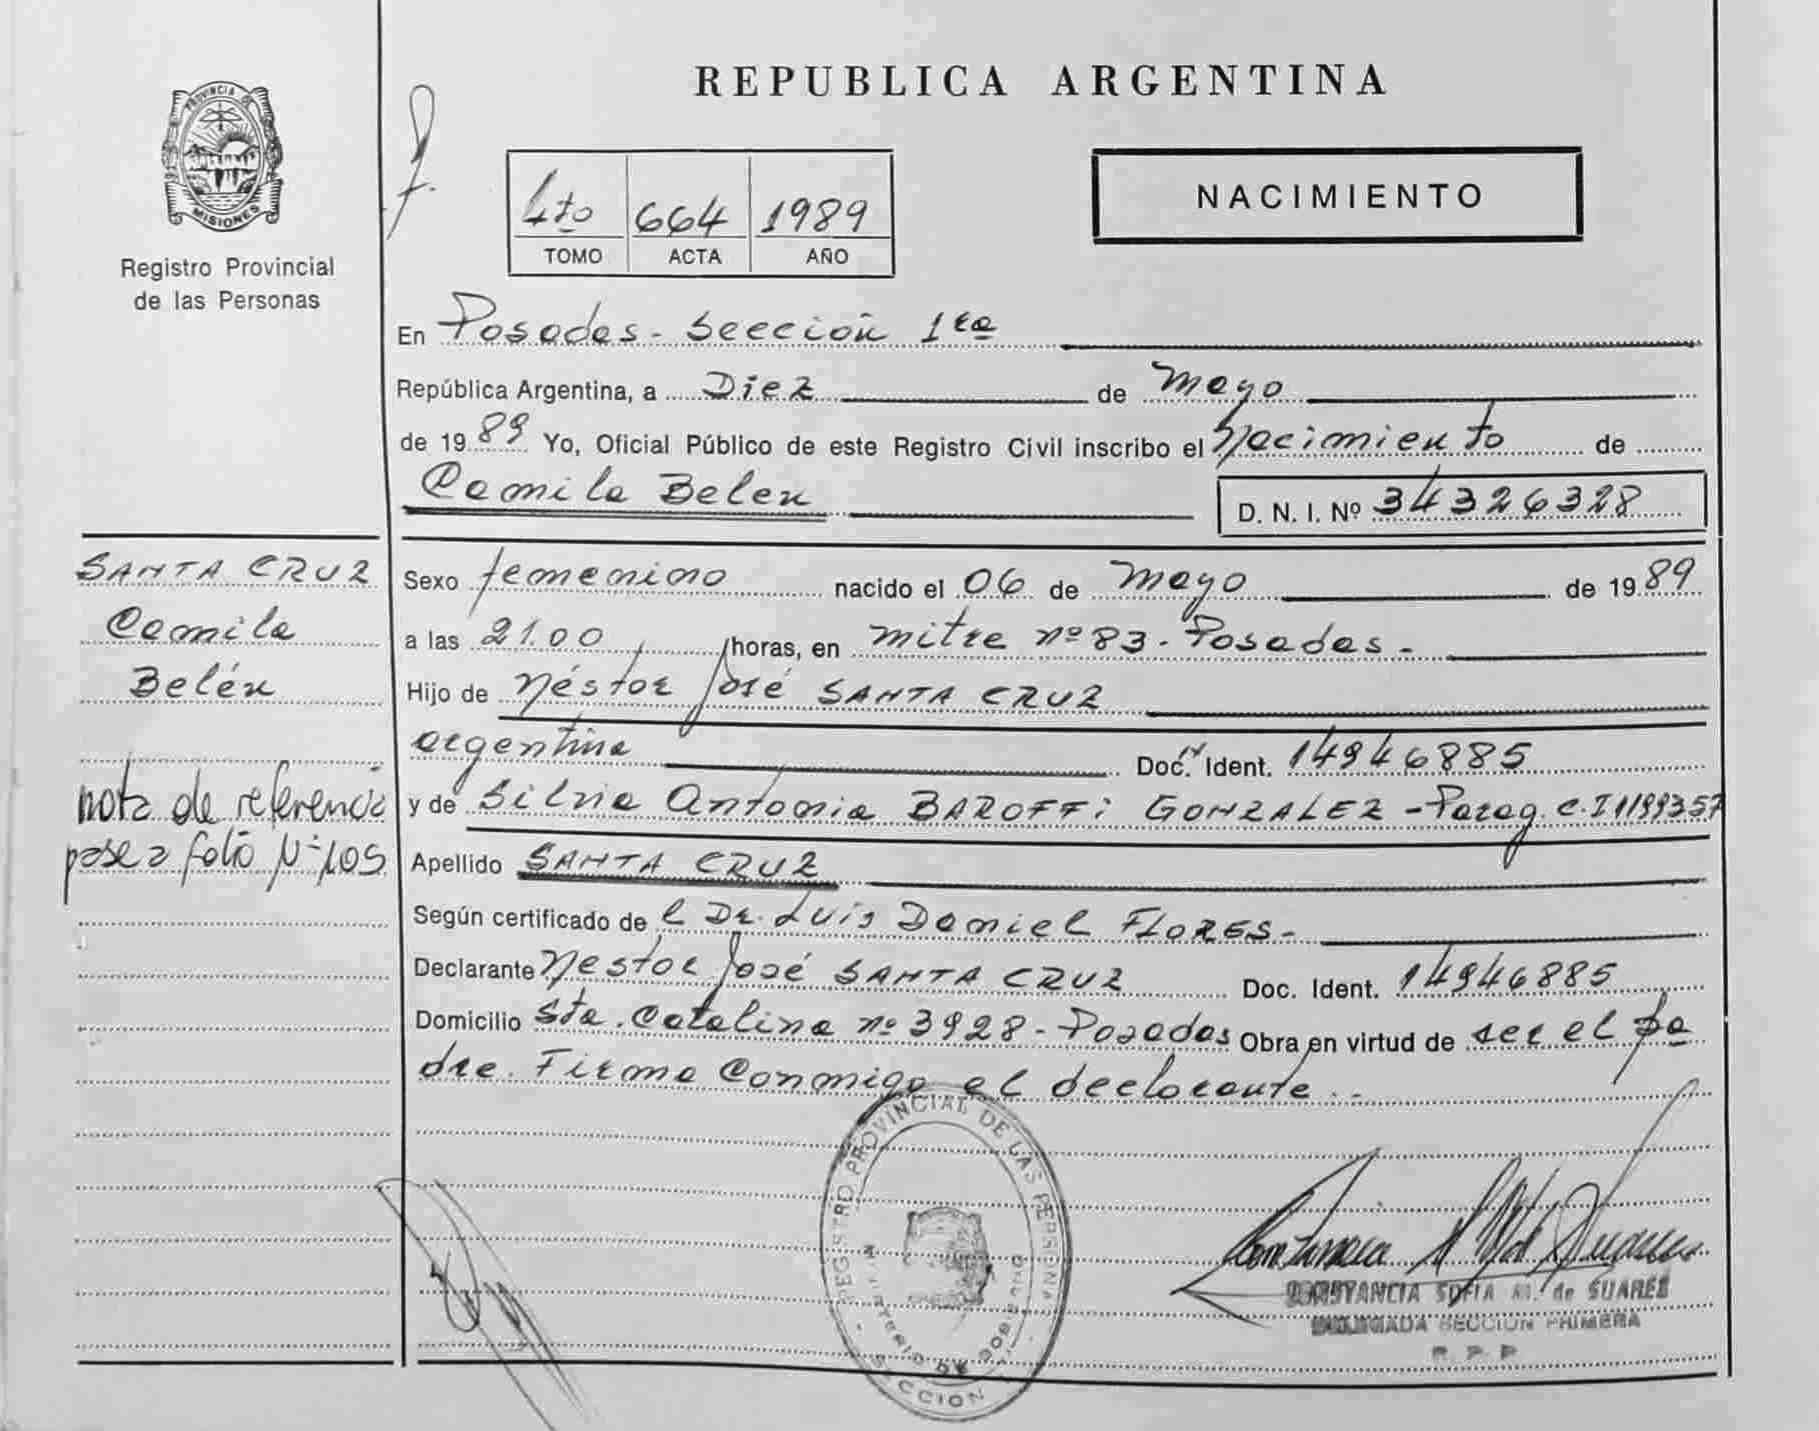 REPUBLICA ARGENTINA
PROVINCIA DE
MISIONES
Registro Provincial
de las Personas
4to 664 1989
TOMO ACTA AÑO
NACIMIENTO
En Posadas - Sección 1ra
República Argentina, a Diez de Mayo
de 1989 Yo, Oficial Público de este Registro Civil inscribo el Nacimiento de
Camila Belen
D. N. I. Nº 34326328
SANTA CRUZ
Camila
Belén
nota de referencia
pase a folio Nº 105
Sexo femenino nacido el 06 de Mayo de 1989
a las 21.00 horas, en Mitre nº 83 - Posadas -
Hijo de Néstor José SANTA CRUZ
argentina Doc. Ident. 14946885
y de Silvia Antonia BAROFFi GONZALEZ - Parag. C.I 1199357
Apellido SANTA CRUZ
Según certificado de l Dr. Luis Daniel FLORES -
Declarante Nestor José SANTA CRUZ Doc. Ident. 14946885
Domicilio Sta. Catalina nº 3928 - Posadas Obra en virtud de ser el pa
dre. Firma Conmigo el declarante..
REGISTRO PROVINCIAL DE LAS PERSONAS
MINISTERIO DE GOBIERNO
SECCION
CONSTANCIA SOFIA M. de SUAREZ
DELEGADA SECCION PRIMERA
R. P. P.